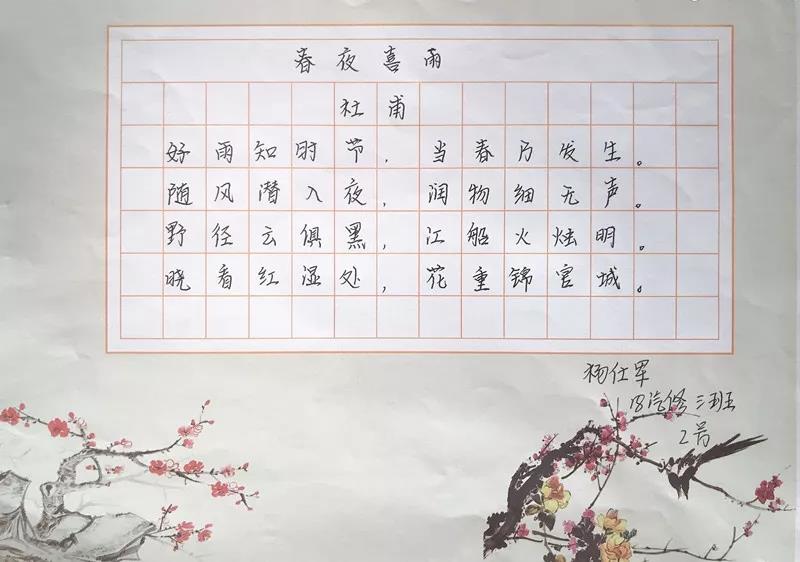 春夜喜雨
杜甫
好雨知时节，当春乃发生。
随风潜入夜，润物细无声。
野径云俱黑，江船火烛明。
晓看红湿处，花重锦官城。
杨仕军
18汽修三班
2号